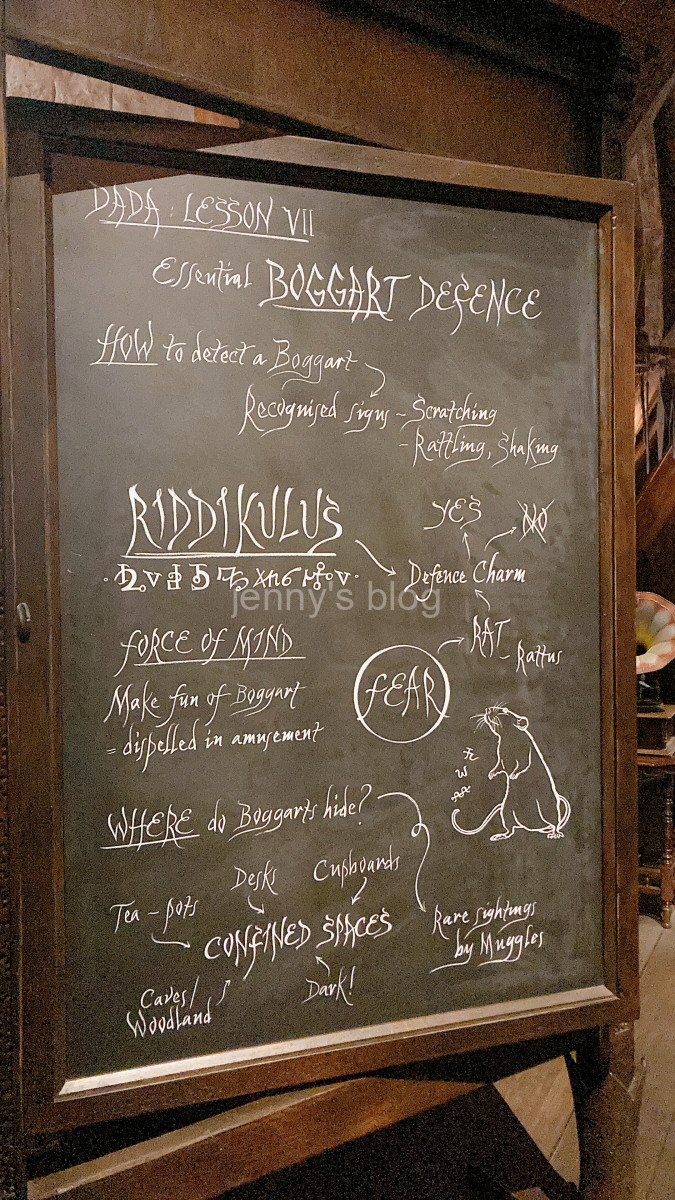 DADA : LESSON VII
Essential BOGGART DEFENCE
HOW to detect a Boggart
Recognised signs - Scratching
- Rattling, Shaking
RIDDIKULUS
YES
NO
Defence Charm
jenny's blog
FORCE OF MIND
RAT - Rattus
FEAR
Make fun of Boggart
= dispelled in amusement
WHERE do Boggarts hide?
Desks
Cupboards
Tea - pots
CONFINED SPACES
Rare sightings
by Muggles
Caves/
Woodland
Dark!